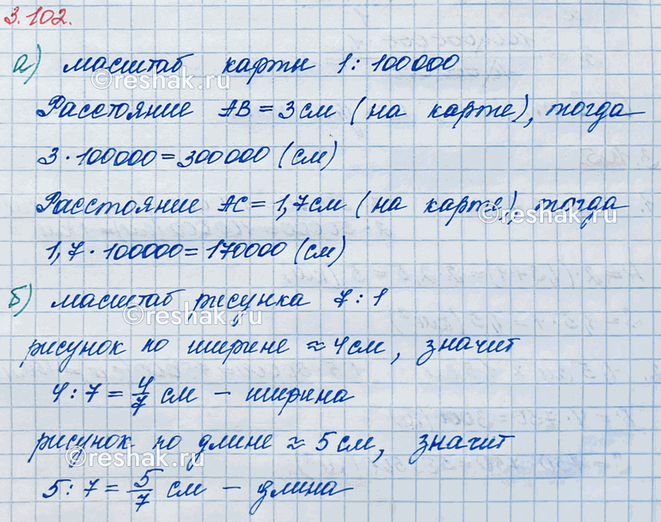 3.102.
а) масштаб карты 1 : 100000
Расстояние АВ = 3 см (на карте), тогда
3 · 100000 = 300000 (см)
Расстояние АС = 1,7 см (на карте), тогда
1,7 · 100000 = 170000 (см)
б) масштаб рисунка 7 : 1
рисунок по ширине ≈ 4 см, значит
4 : 7 = 4/7 см – ширина
рисунок по длине ≈ 5 см, значит
5 : 7 = 5/7 см – длина
©reshak.ru
©reshak.ru
©reshak.ru
©reshak.ru